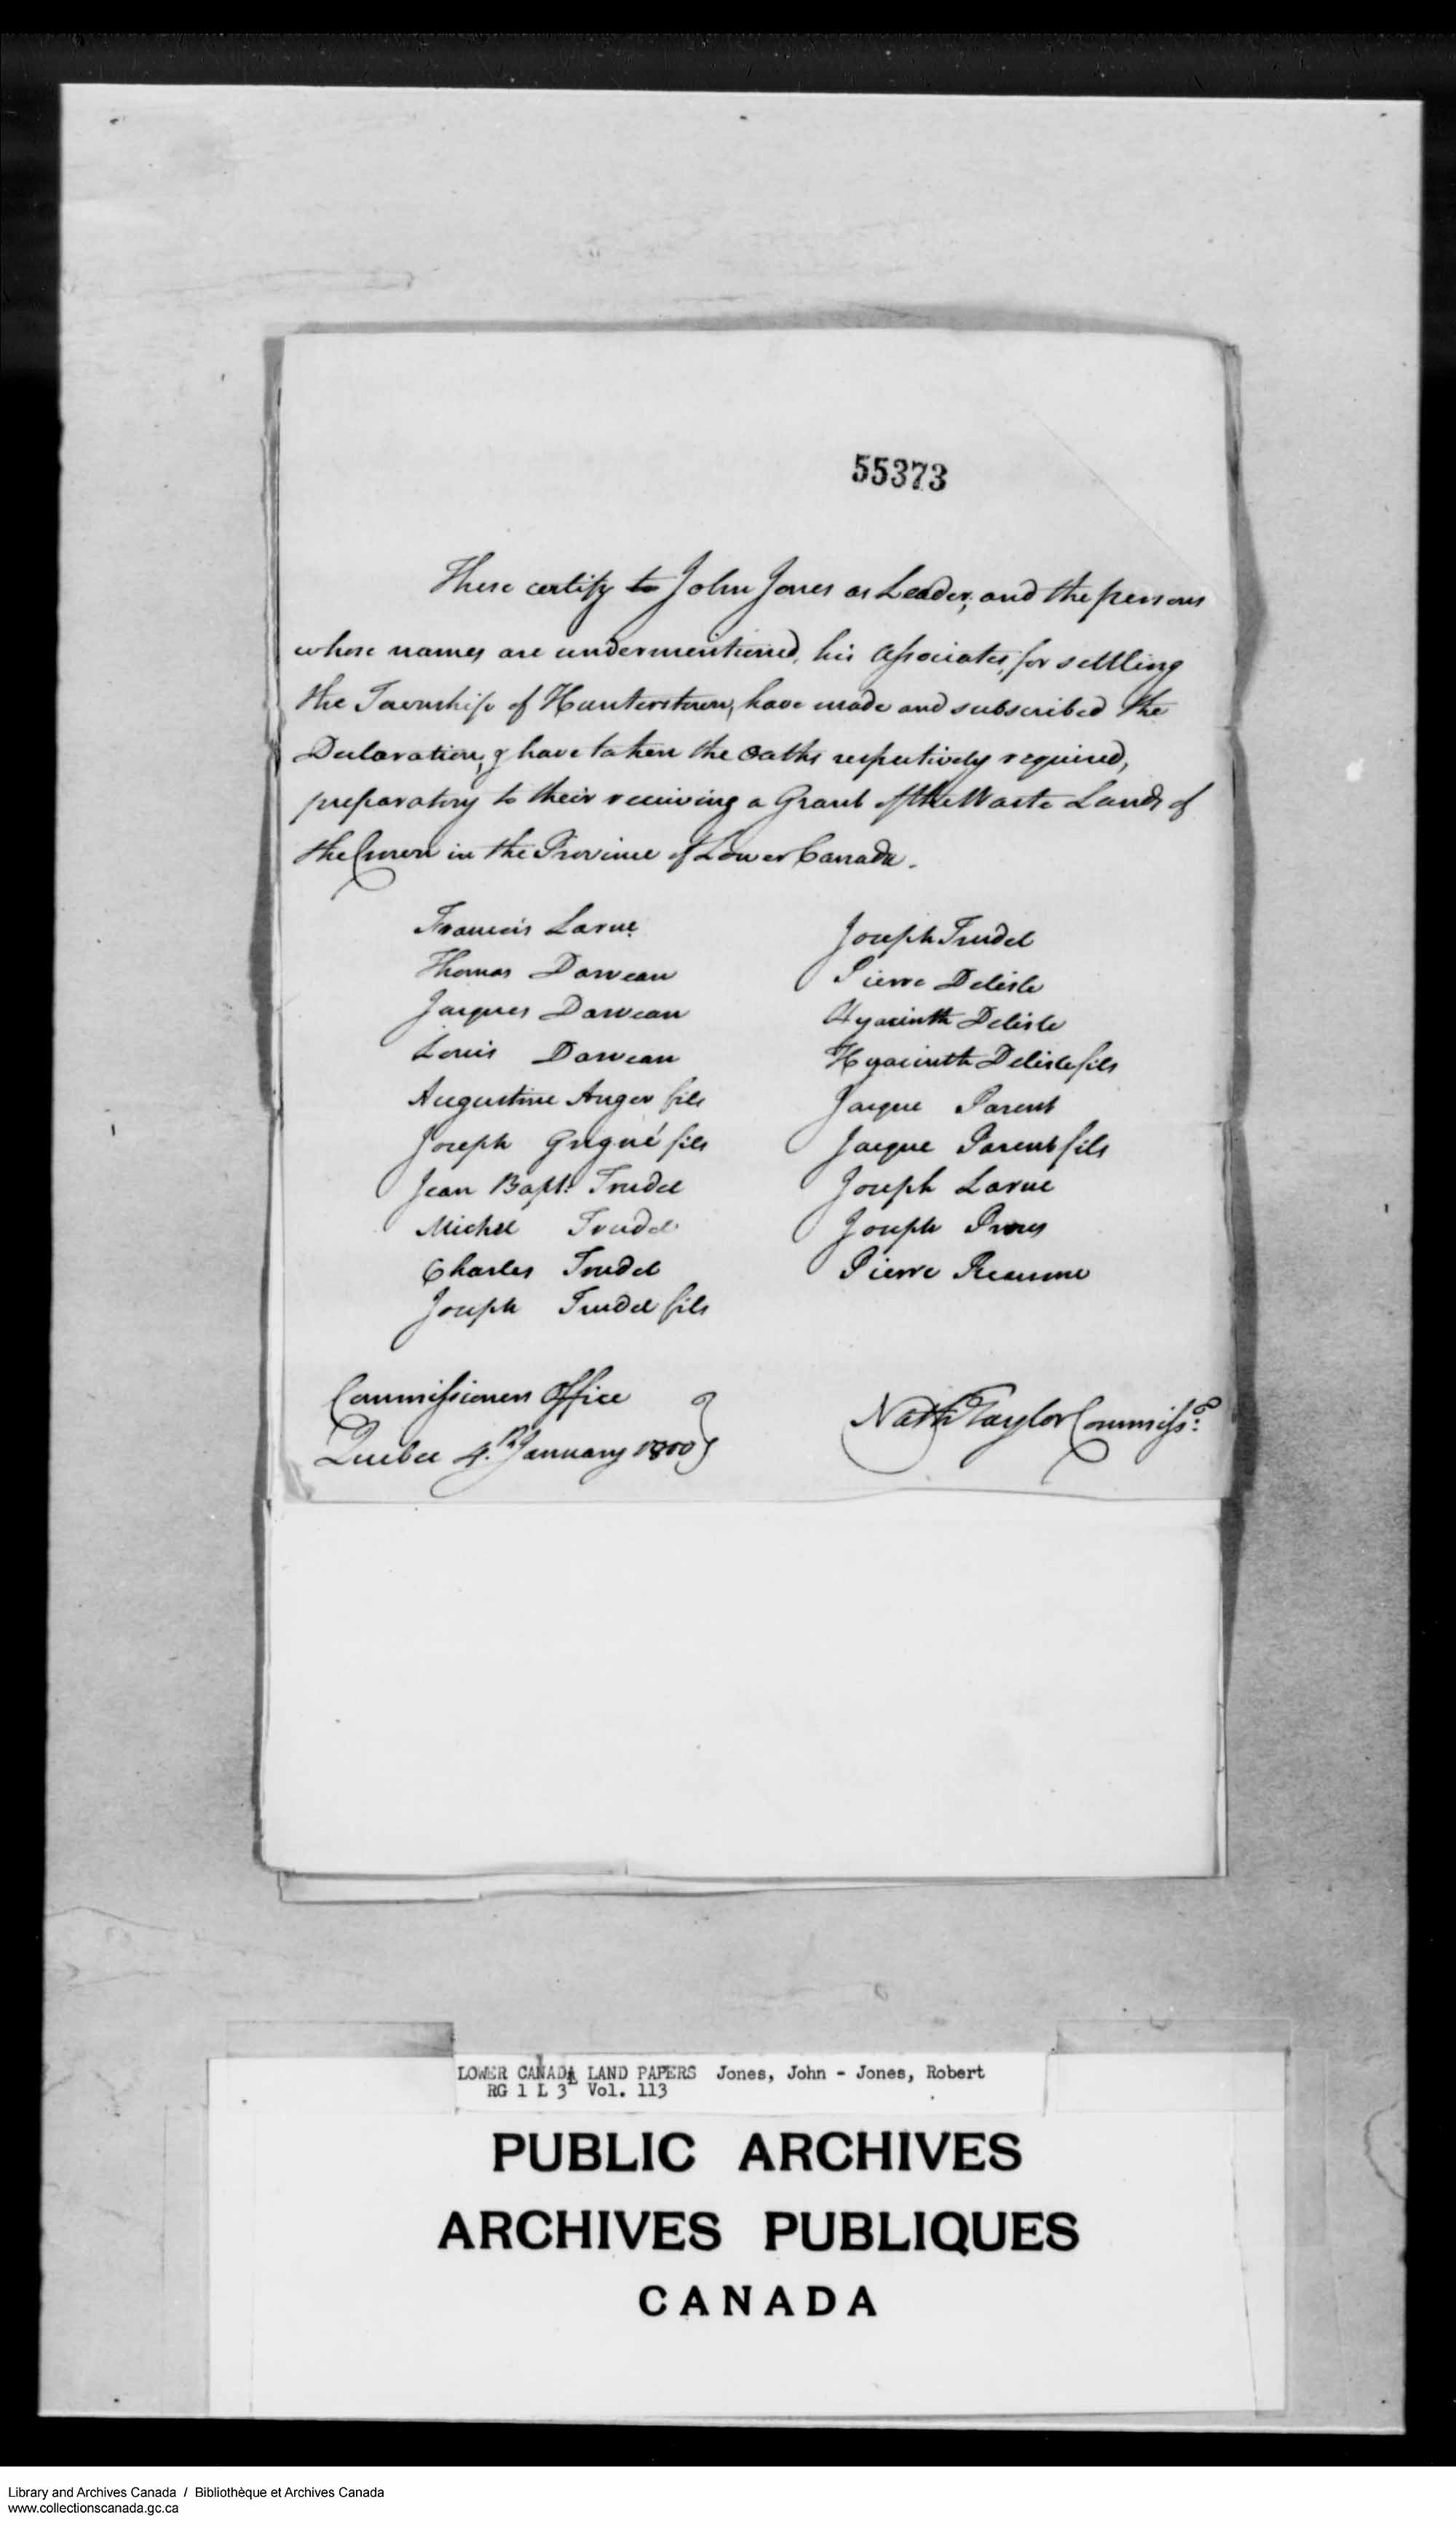 55373
These certify to John Jones as Leader, and the persons
whose names are undermentioned, his Associates, for settling
the Township of Hunterstown, have made and subscribed the
Declaration, & have taken the Oaths respectively required,
preparatory to their receiving a Grant of the Waste Lands of
the Crown in the Province of Lower Canada.
Francois Larue
Thomas Darveau
Jacques Darveau
Louis Darveau
Augustine Auger fils
Joseph fils
Jean Bapt. Trudel
Michel Trudel
Charles Trudel
Joseph Trudel fils
Joseph Trudel
Pierre Delisle
Hyacinth Delisle
Hyacinth Delisle fils
Jacque Parent
Jacque Parent fils
Joseph Larue
Joseph
Pierre Reaume
Commissioners Office
Quebec 4th. January 1800
Nathl Taylor Commissr.
LOWER CANADA LAND PAPERS Jones, John - Jones, Robert
RG 1 L 3L Vol. 113
PUBLIC ARCHIVES
ARCHIVES PUBLIQUES
CANADA
Library and Archives Canada / Bibliothèque et Archives Canada
www.collectionscanada.gc.ca